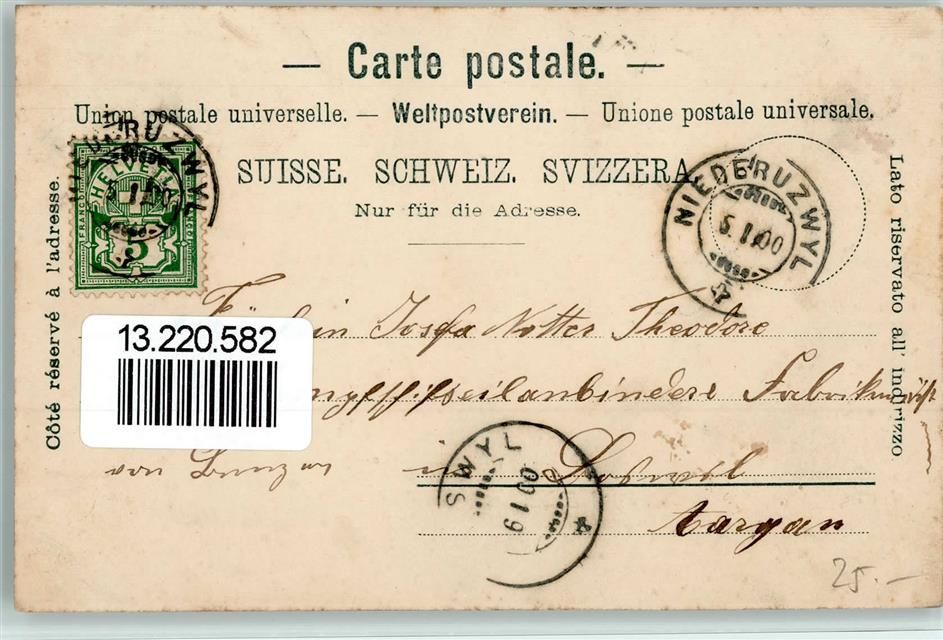 — Carte postale. —
Union postale universelle. — Weltpostverein. — Unione postale universale.
SUISSE. SCHWEIZ. SVIZZERA.
Nur für die Adresse.
Côté réservé à l'adresse.
Lato riservato all' indirizzo
HELVETIA
FRANCO
5
NIEDERUZWYL
NIEDERUZWYL
5.I.00
Fräulein Josefa Notter Theodore
13.220.582
von in
Aargau
SWYL
25.-